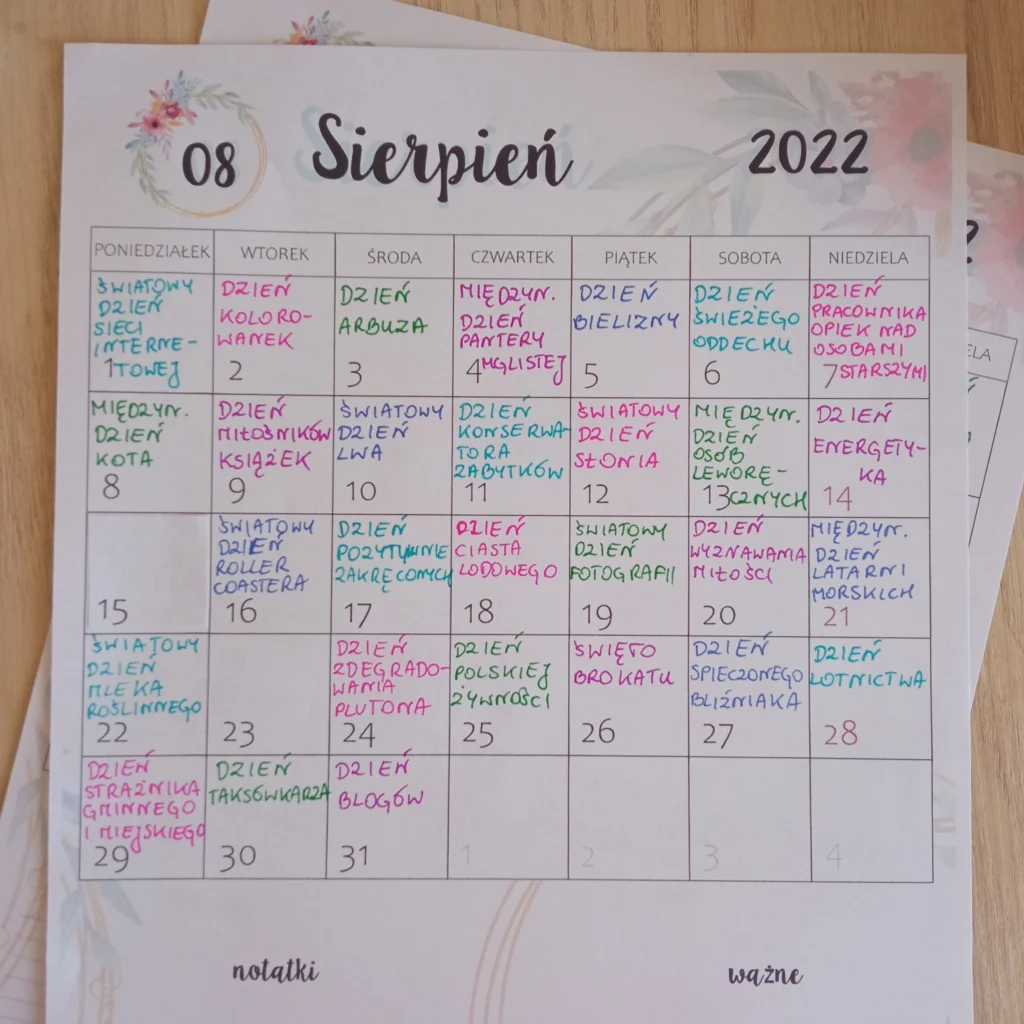 08 Sierpień 2022
PONIEDZIAŁEK WTOREK ŚRODA CZWARTEK PIĄTEK SOBOTA NIEDZIELA
ŚWIATOWY
DZIEŃ
SIECI
INTERNE-
1 TOWEJ
DZIEŃ
KOLORO-
WANEK
2
DZIEŃ
ARBUZA
3
MIĘDZYN.
DZIEŃ
PANTERY
4 MGLISTEJ
DZIEŃ
BIELIZNY
5
DZIEŃ
ŚWIEŻEGO
ODDECHU
6
DZIEŃ
PRACOWNIKA
OPIEK NAD
OSOBAMI
7 STARSZYMI
MIĘDZYN.
DZIEŃ
KOTA
8
DZIEŃ
MIŁOŚNIKÓW
KSIĄŻEK
9
ŚWIATOWY
DZIEŃ
LWA
10
DZIEŃ
KONSERWA-
TORA
ZABYTKÓW
11
ŚWIATOWY
DZIEŃ
SŁONIA
12
MIĘDZYN.
DZIEŃ
OSÓB
LEWORĘ-
13 CZNYCH
DZIEŃ
ENERGETY-
KA
14
15
ŚWIATOWY
DZIEŃ
ROLLER
COASTERA
16
DZIEŃ
POZYTYWNIE
ZAKRĘCONYCH
17
DZIEŃ
CIASTA
LODOWEGO
18
ŚWIATOWY
DZIEŃ
FOTOGRAFII
19
DZIEŃ
WYZNAWANIA
MIŁOŚCI
20
MIĘDZYN.
DZIEŃ
LATARNI
MORSKICH
21
ŚWIATOWY
DZIEŃ
MLEKA
ROŚLINNEGO
22
23
DZIEŃ
ZDEGRADO-
WANIA
PLUTONA
24
DZIEŃ
POLSKIEJ
ŻYWNOŚCI
25
ŚWIĘTO
BROKATU
26
DZIEŃ
SPIECZONEGO
BLIŹNIAKA
27
DZIEŃ
LOTNICTWA
28
DZIEŃ
STRAŻNIKA
GMINNEGO
I MIEJSKIEGO
29
DZIEŃ
TAKSÓWKARZA
30
DZIEŃ
BLOGÓW
31
1
2
3
4
notatki
ważne
2
ELA